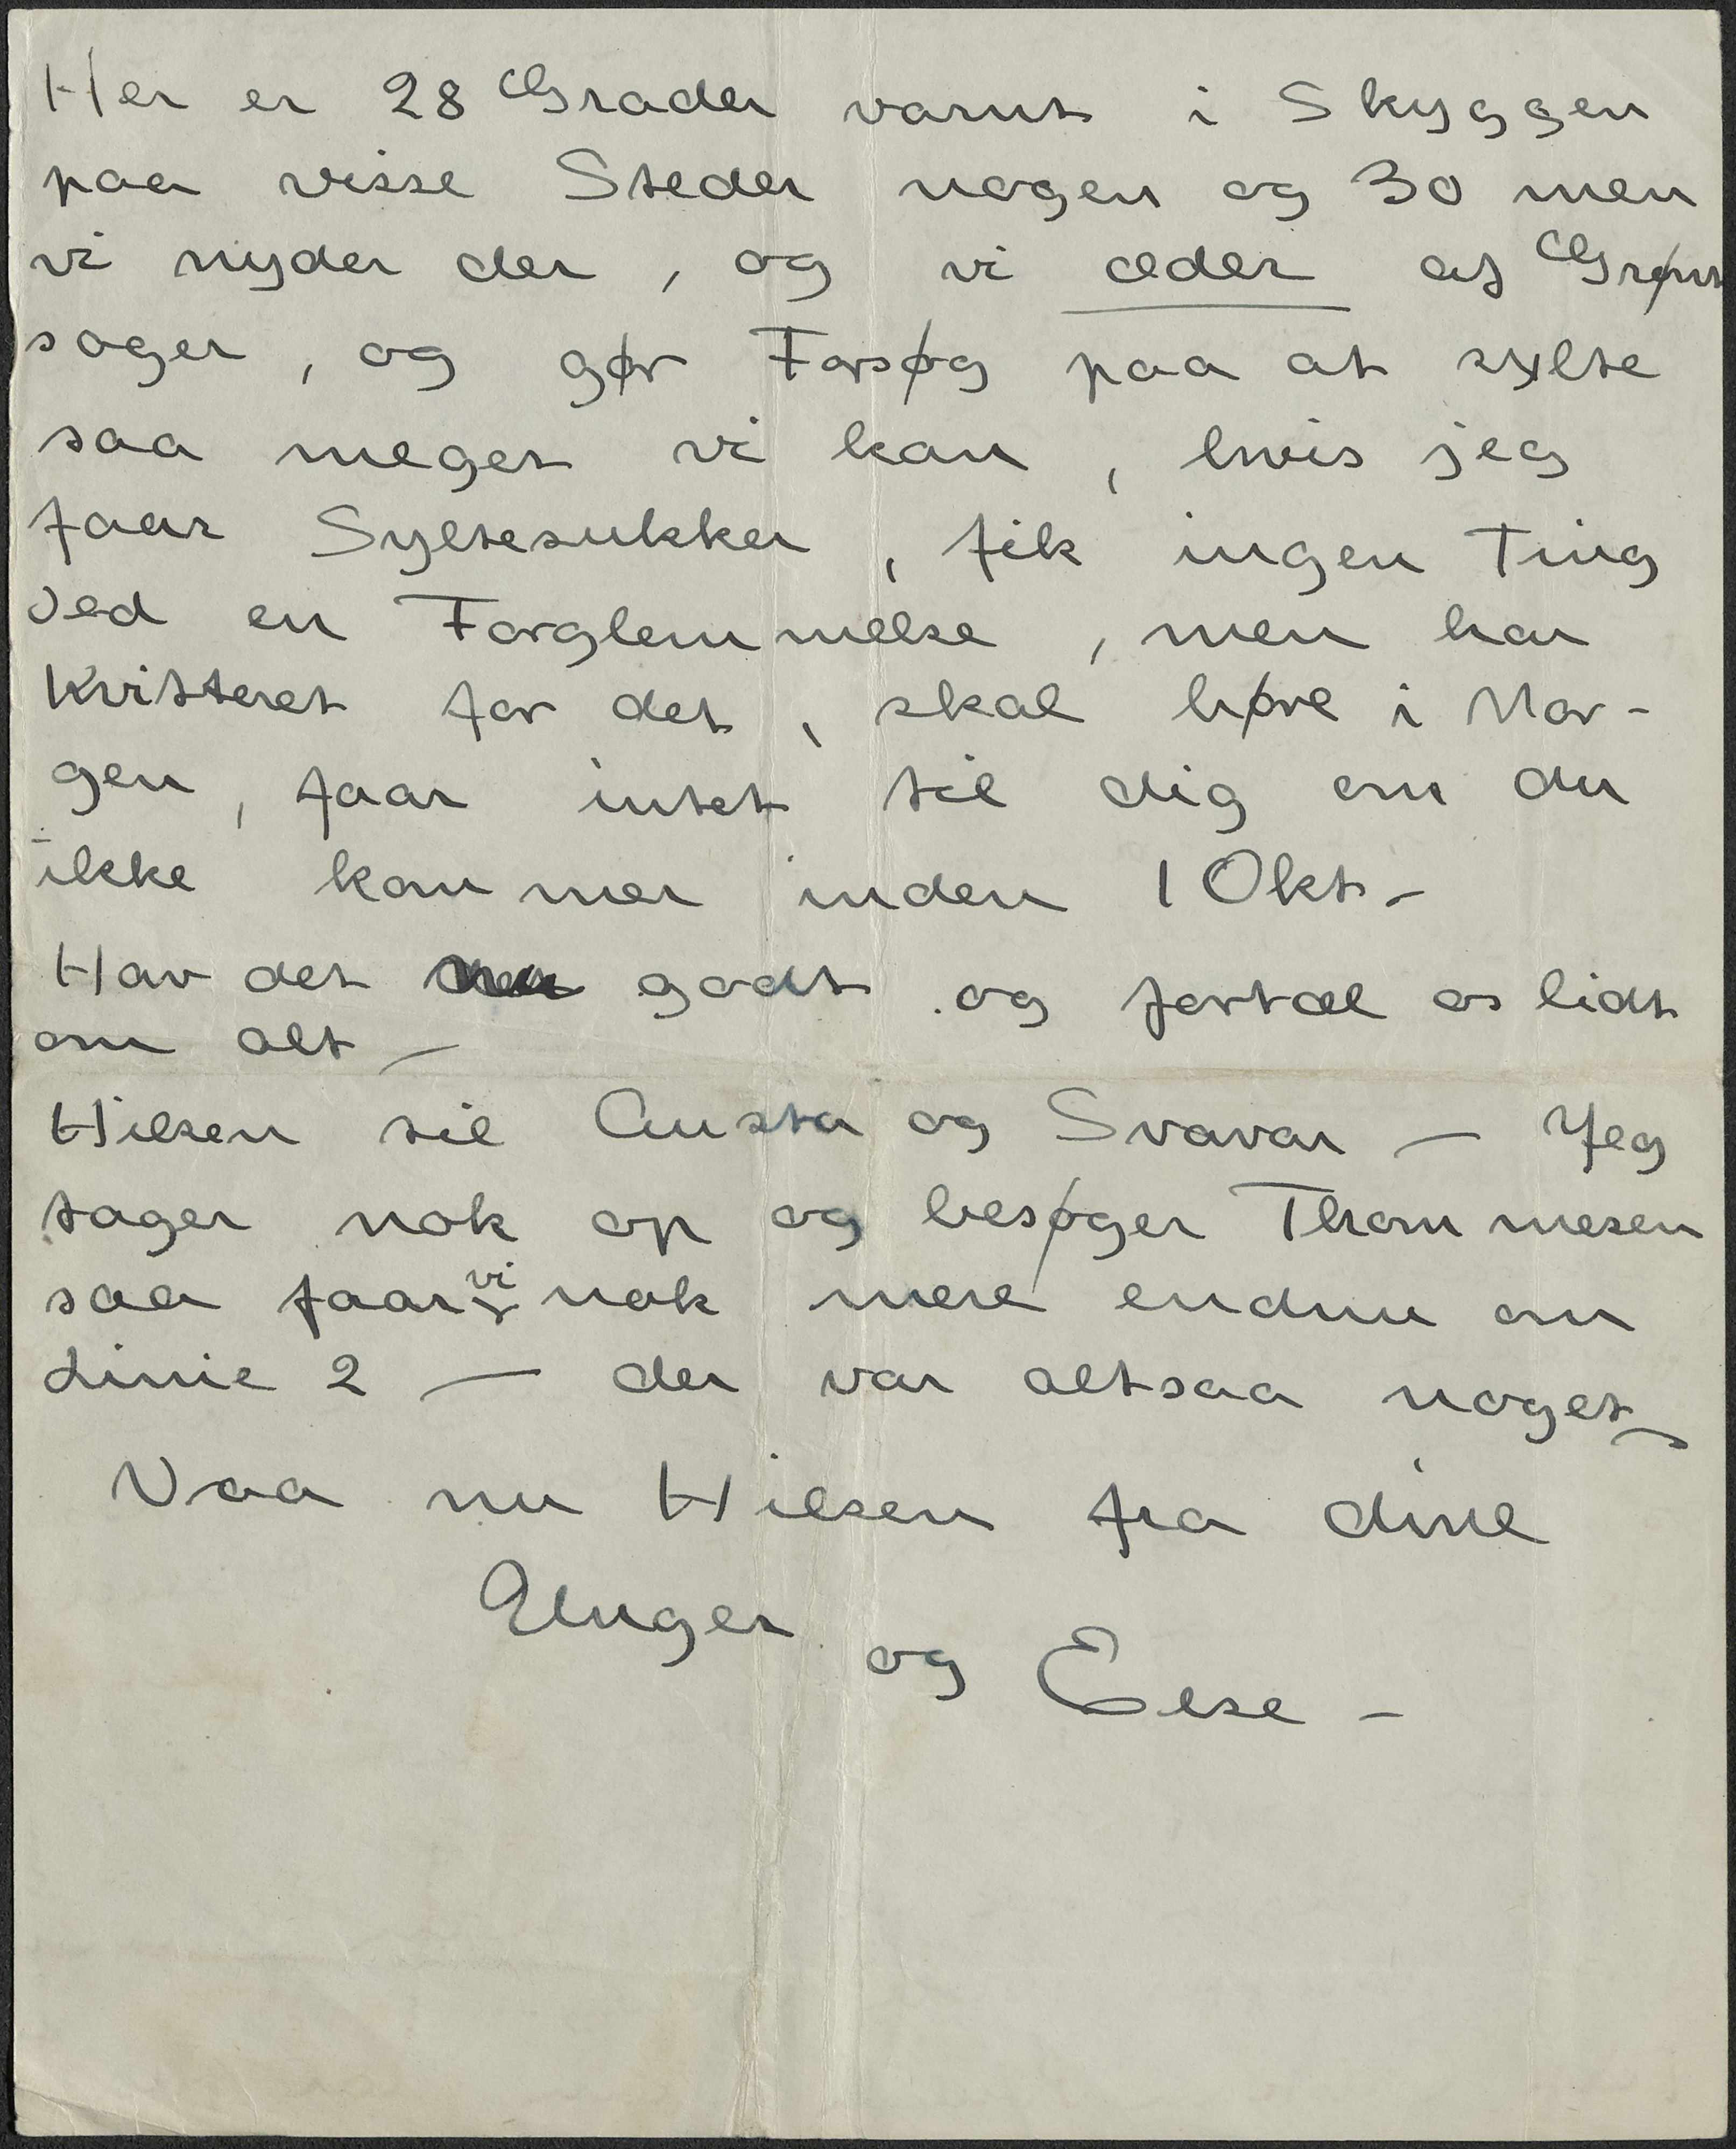 Her er 28 Grader varmt i Skyggen
paa visse Steder nogen og 30 men
vi nyder der, og vi æder af Grønt
sager, og gør Forsøg paa at sylte
saa meget vi kan, hvis jeg
faar Syltesukker, fik ingen Ting
ved en Forglemmelse, men har
Kvitteret for det, skal høre i Mor-
gen, faar intet til dig om du
ikke kommer inden 1 Okt-
Hav det godt og fortæl os lidt
om alt —
Hilsen til Austa og Svavar — Jeg
tager nok op og besøger Thommesen
saa faar vi nok mere endnu om
Linie 2 — der var altsaa noget —
Naa nu Hilsen fra dine
Unger
og Else —